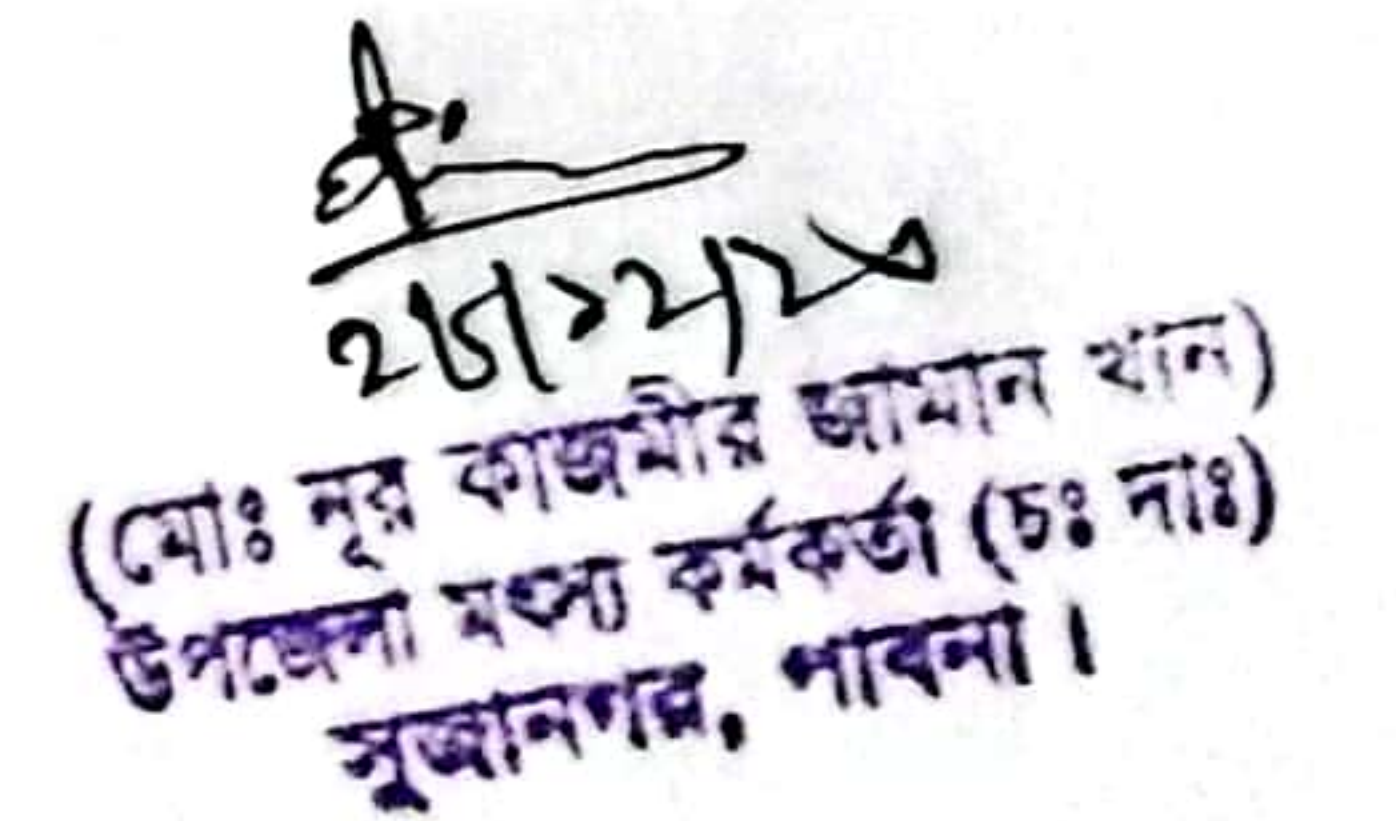 (মোঃ নূর কাজমীর জামান খান)
উপজেলা মৎস্য কর্মকর্তা (চঃ দাঃ)
সুজানগর, পাবনা।